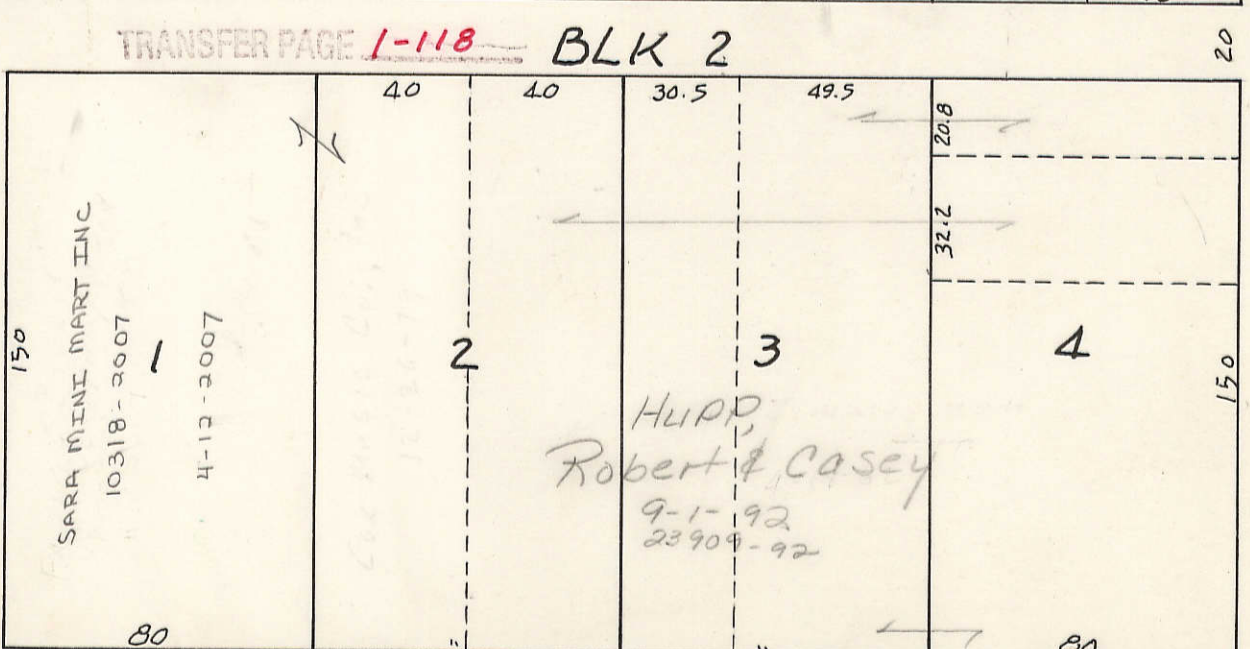 TRANSFER PAGE 1-118 BLK 2
20
40 40 30.5 49.5
20.8
32.2
150
SARA MINI MART INC
10318-2007
4-12-2007
1
2
3
4
150
Hupp,
Robert & Casey
9-1-92
23909-92
80
"
"
80